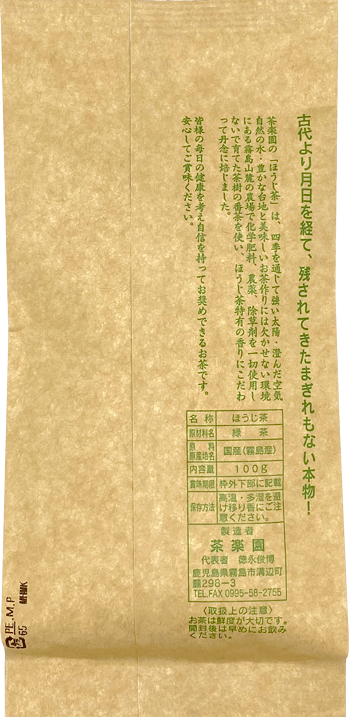 古代より月日を経て、残されてきたまぎれもない本物！
茶楽園の「ほうじ茶」は、四季を通じて強い太陽・澄んだ空気
自然の水・豊かな台地と美味しいお茶作りには欠かせない環境
にある霧島山麓の農場で化学肥料、農薬、除草剤を一切使用し
ないで育てた茶樹の番茶を使い、ほうじ茶特有の香りにこだわ
って丹念に焙じました。
皆様の毎日の健康を考え自信を持ってお奨めできるお茶です。
安心してご賞味ください。
名称 ほうじ茶
原材料名 緑茶
原料原産地名 国産(霧島産)
内容量 100g
賞味期限 枠外下部に記載
保存方法 高温・多湿を避
け移り香にご注
意ください。
製造者
茶楽園
代表者 徳永俊博
鹿児島県霧島市溝辺町
麓298-3
TEL.FAX 0995-58-2755
〈取扱上の注意〉
お茶は鮮度が大切です。
開封後は早めにお飲み
ください。
PE.M.P
65